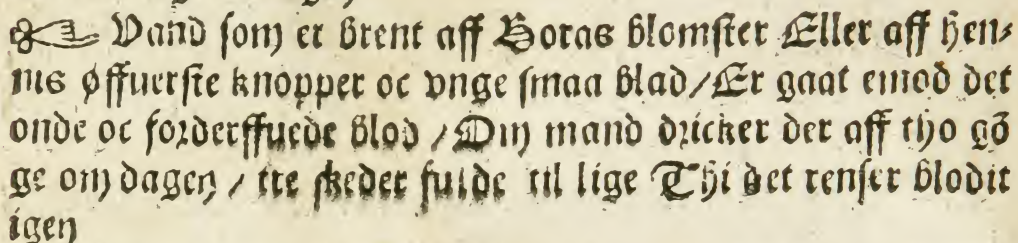 ☞ Vand som er brent aff Boras blomster Eller aff hen⸗
nis øffuerste knopper oc vnge smaa blad/Er gaat emod det
onde oc forderffuede blod /Om mand dricker der aff tho gō
ge om dagen / tre skeder fulde til lige Thi det renser blodit
igen